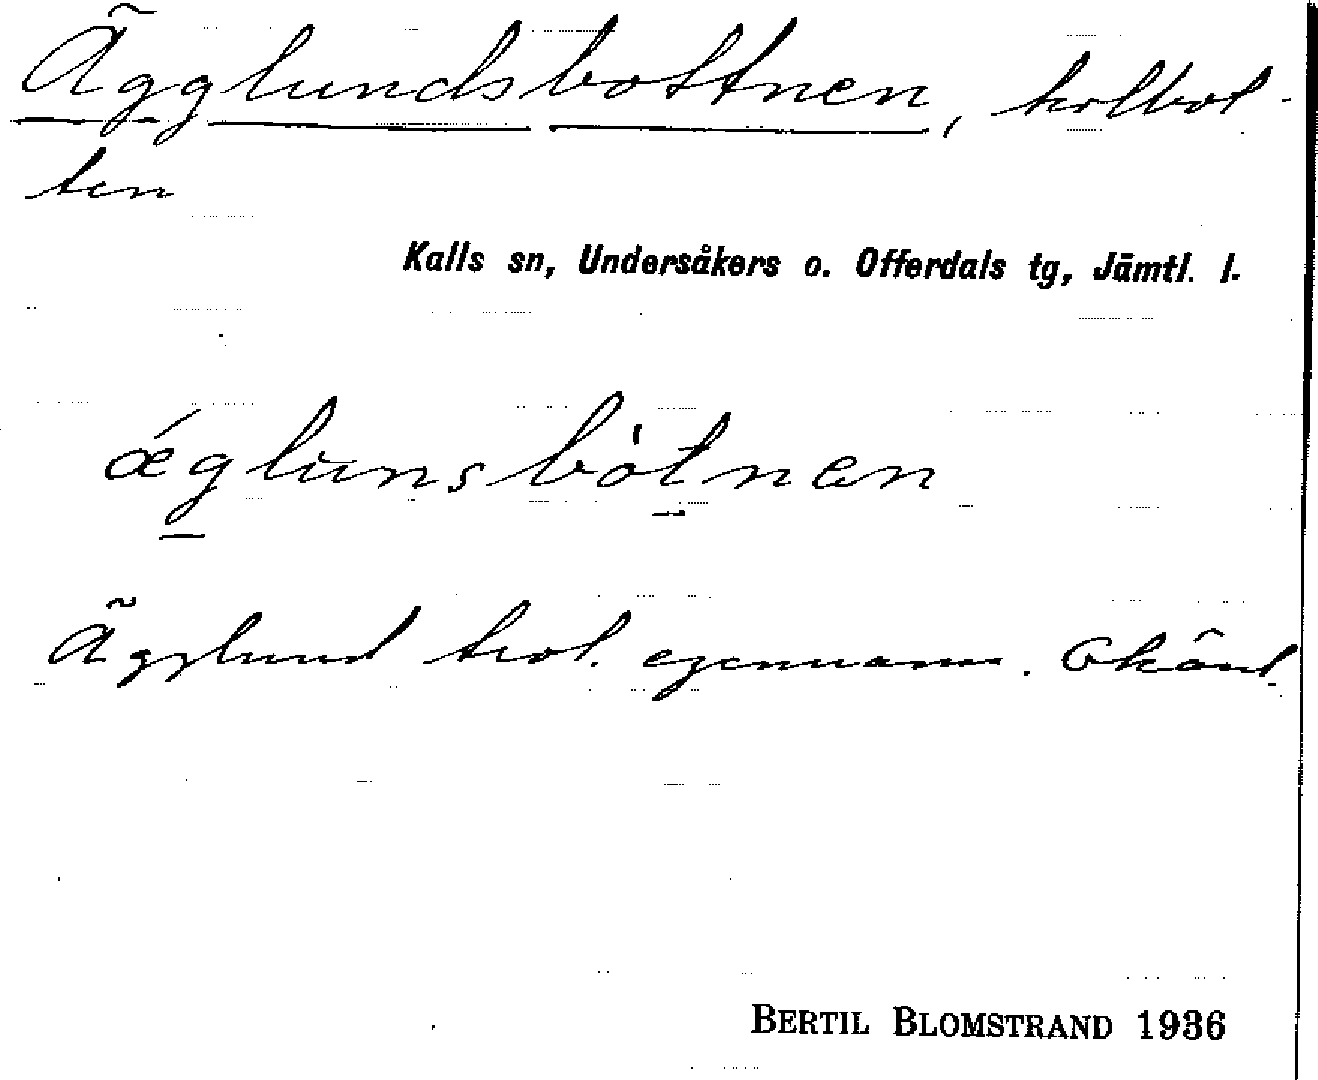 Ägglundsbottnen, kolbot-
ten
Kalls sn, Undersåkers o. Offerdals tg, Jämtl. l.
ǽglunsbòtnen
Ägglund trol. egennamn. Okänt
BERTIL BLOMSTRAND 1936